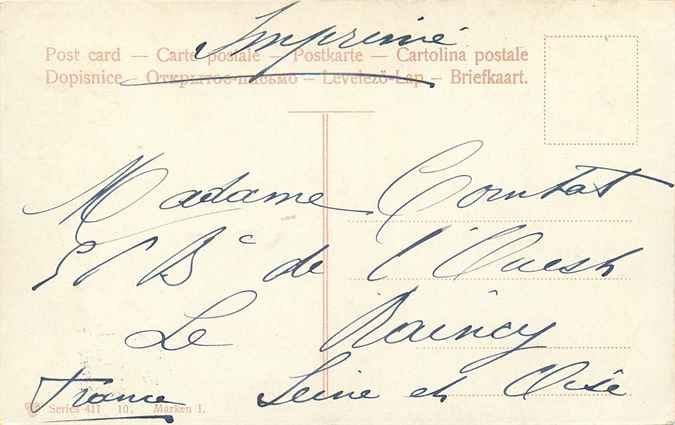 Imprimé
Post card — Carte postale — Postkarte — Cartolina postale
Dopisnice — Открытое письмо — Levelező-Lap — Briefkaart.
Madame Combat
Bᶜ de l'Ouest
Le Raincy
France Seine et Oise
Series 411 10. Marken 1.